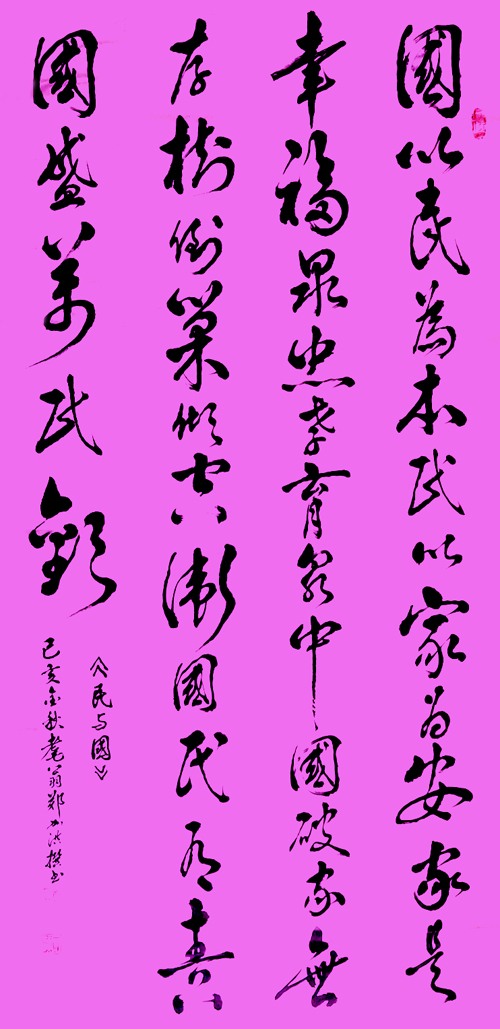 國以民為本民以家为安家是
幸福泉忠孝育中國破家無
存樹倒巢傾空衛國民有責
國盛萬民歡
《民与國》
己亥金秋耄翁郑洪撰书